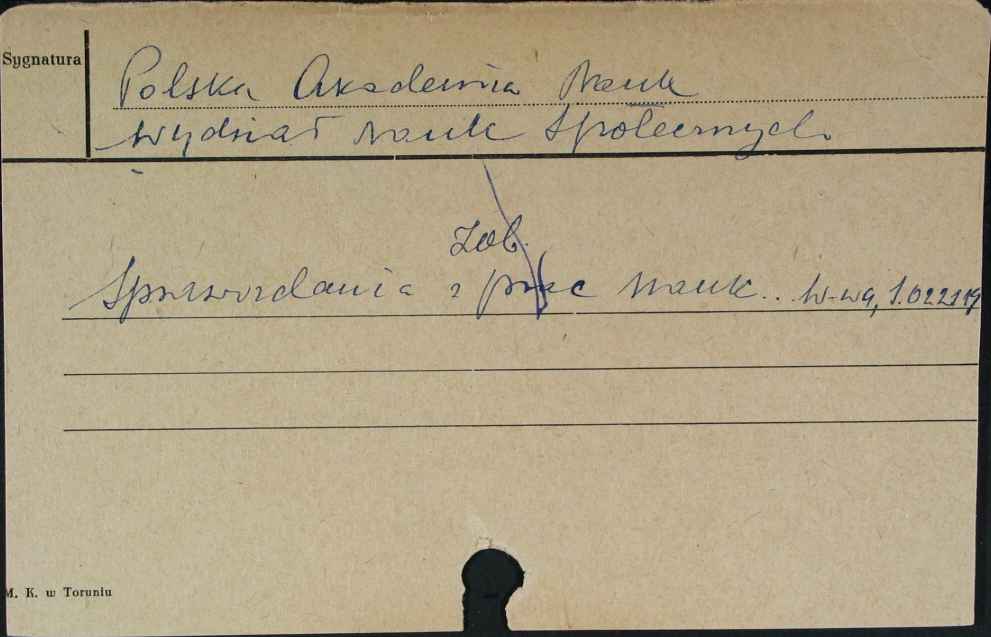 Sygnatura
Polska Akademia Nauk
Wydział Nauk Społecznych
Zob.
Sprawozdania z prac nauk.. W-wa,
M. K. w Toruniu